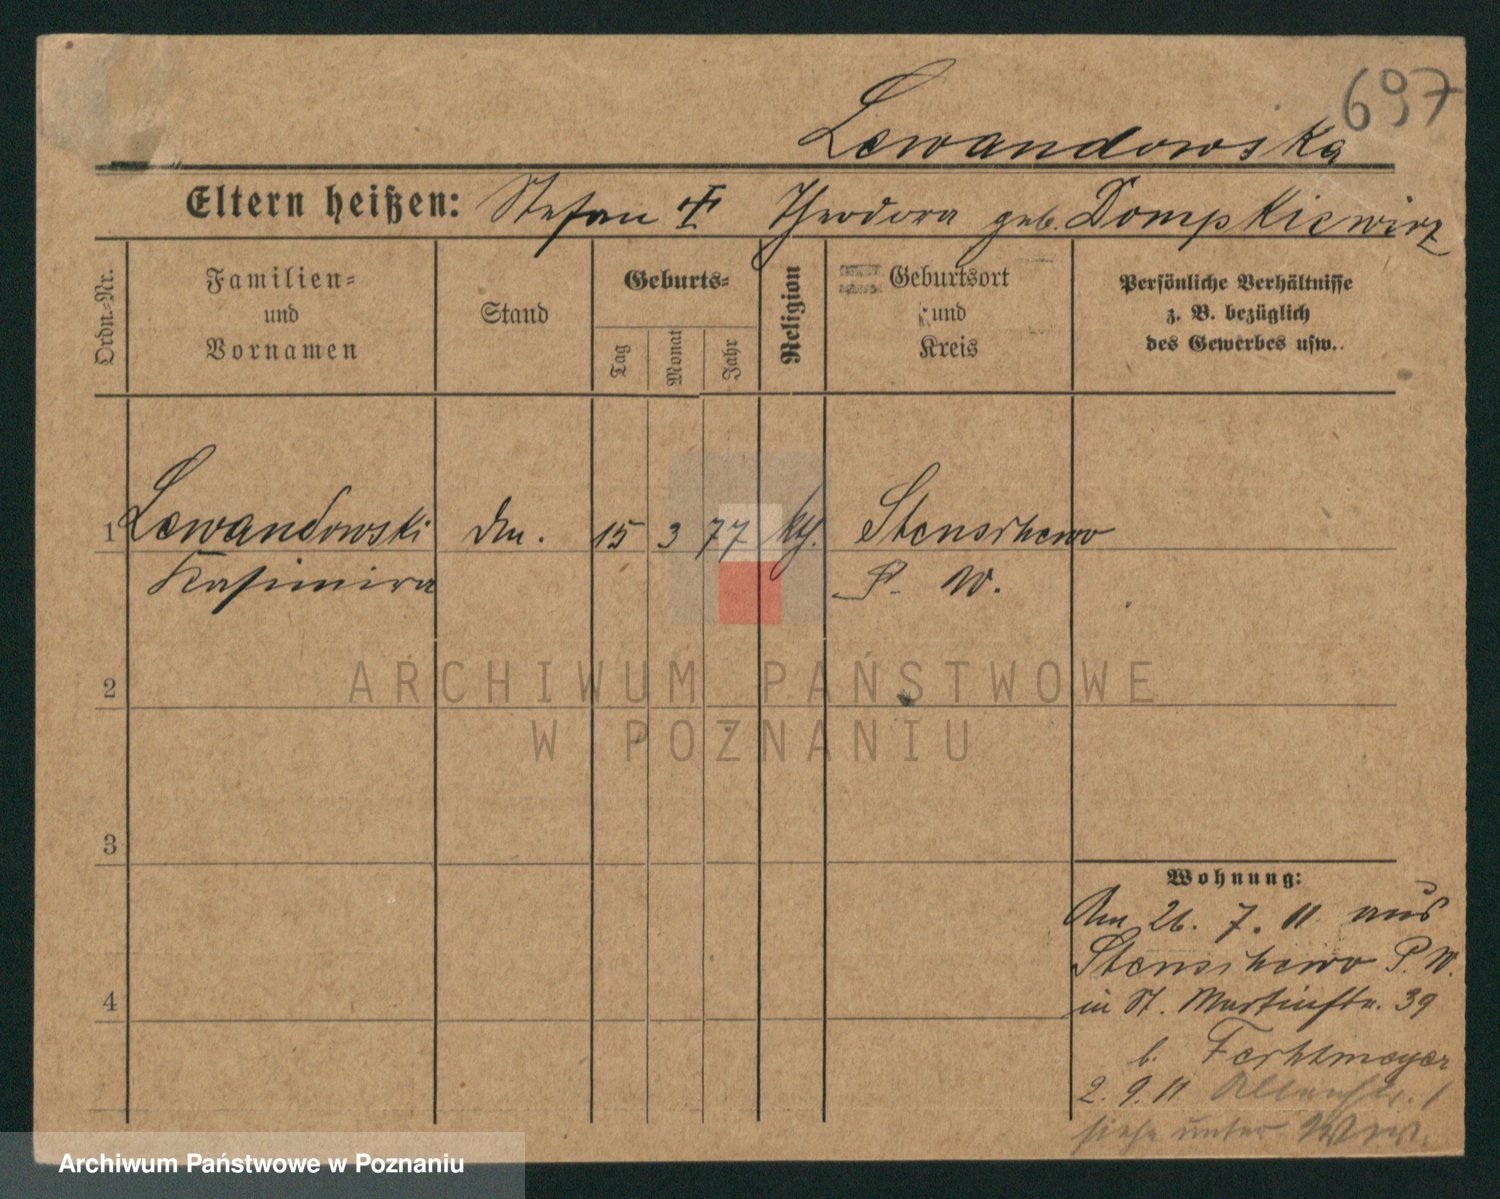 697
Lewandowska
Eltern heißen: Stefan † Theodora geb. Dompkiewicz
Ordn.-Nr.
Familien-
und
Vornamen
Stand
Geburts-
Tag
Monat
Jahr
Religion
Geburtsort
und
Kreis
Persönliche Verhältnisse
z. B. bezüglich
des Gewerbes usw.
1 Lewandowski 15 3 77 kth. Stenschewo
Kasimira P. W.
2
3
4
Wohnung:
Am 26. 7. 11 aus
Stenschewo P. W.
in St. Martinstr. 39
b.
2. 9. 11
siehe unter
ARCHIWUM PAŃSTWOWE
W POZNANIU
Archiwum Państwowe w Poznaniu